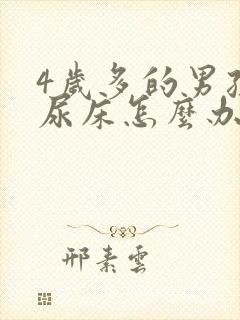 4歲多的男孩
尿床怎麼办
邢素雲